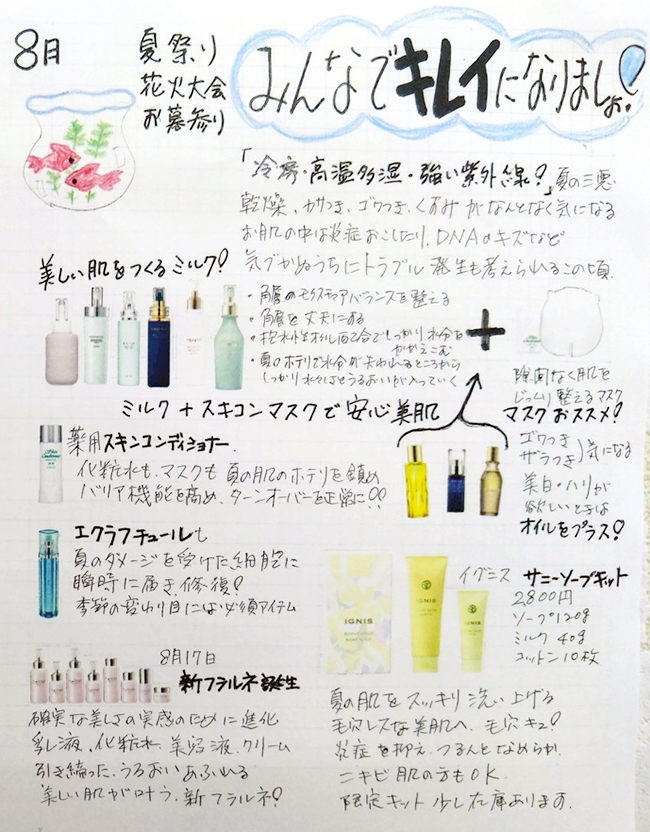 8月
夏祭り
花火大会
お墓参り
みんなでキレイになりましょ!
「冷房・高温多湿・強い紫外線!」夏の三悪
乾燥、カサつき、ゴワつき、くすみがなんとなく気になる
お肌の中は炎症おこしたり、DNAのキズなど
気づかぬうちにトラブル発生も考えられるこの頃
美しい肌をつくるミルク!
・角層のモイスチャアバランスを整える
・角層を丈夫にする
・抱水性オイル配合でしっかり水分を
かかえこむ
・夏のホテリで水分が失われるところから
しっかり水々しさとうるおいが入っていく
+
隙間なく肌を
じっくり整えるマスク
ミルク+スキコンマスクで安心美肌
マスクおススメ!
薬用スキンコンディショナー
化粧水も、マスクも夏の肌のホテリを鎮め
バリア機能を高め、ターンオーバーを正常に!!
ゴワつき
ザラつき)気になる
美白・ハリが
欲しいときは
オイルをプラス!
エクラフチュールも
夏のダメージを受けた細胞に
瞬時に届き、修復!
季節の変わり目には必須アイテム
IGNIS
IGNIS
イグニス サニーソープキット
2800円
ソープ120g
ミルク 40g
コットン10枚
8月17日
新フラルネ誕生
確実な美しさの実感のために進化
乳液、化粧水、美容液、クリーム
引き締った、うるおいあふれる
美しい肌が叶う、新フラルネ!
夏の肌をスッキリ洗い上げる
毛穴レスな美肌へ、毛穴キュ!
炎症を抑え、つるんとなめらか
ニキビ肌の方もOK.
限定キット少し在庫あります.